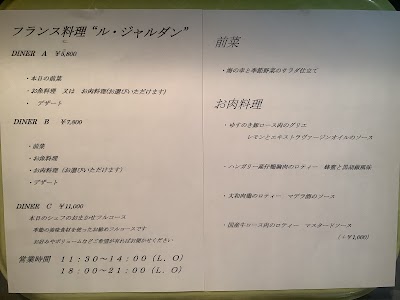 フランス料理“ル・ジャルダン”
DINER A ￥5,800
・本日の前菜
・お魚料理 又は お肉料理(お選びいただけます)
・ デザート
DINER B ￥7,800
・前菜
・お魚料理
・お肉料理 (お選びいただけます)
・デザート
DINER C ￥11,000
本日のシェフのおまかせフルコース
季節の美味食材を使ったお勧めフルコースです
お好みやボリュームなどご希望が有ればお聞かせください
営業時間 11:30～14:00(L,O)
18:00～21:00(L,O)
前菜
・海の幸と季節野菜のサラダ仕立て
お肉料理
・ゆすのき豚ロース肉のグリエ
レモンとエキストラヴァージンオイルのソース
・ハンガリー産仔鴨胸肉のロティー 蜂蜜と黒胡椒風味
・大和肉鶏のロティー マデラ酒のソース
・国産牛ロース肉のロティー マスタードソース
(+￥1,000)